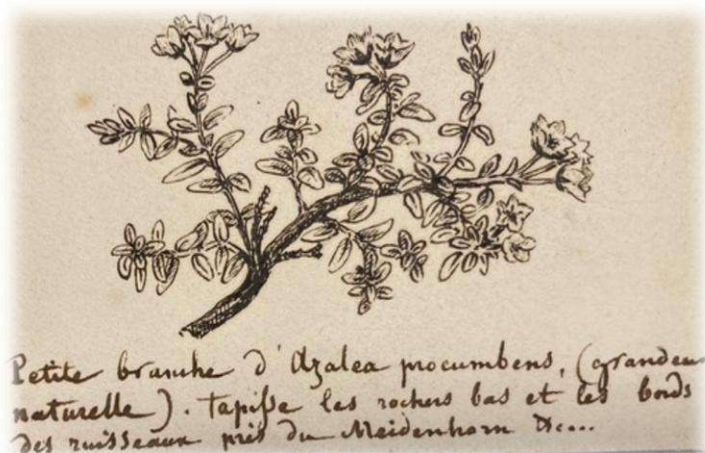 Petite branche d'Azalea procumbens, (grandeur
naturelle). tapisse les rochers bas et les bords
des ruisseaux près du Meidenhorn &c...